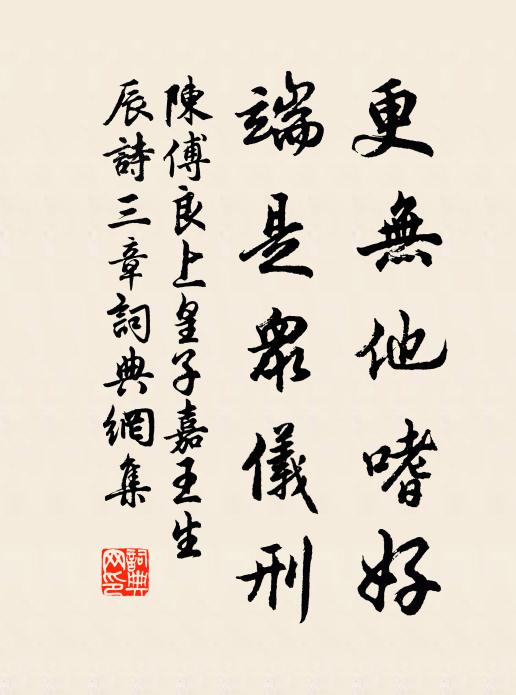 更無他嗜好
端是眾儀刑
陳傅良上皇子嘉王生
辰詩三章詞典網集
詞典网印